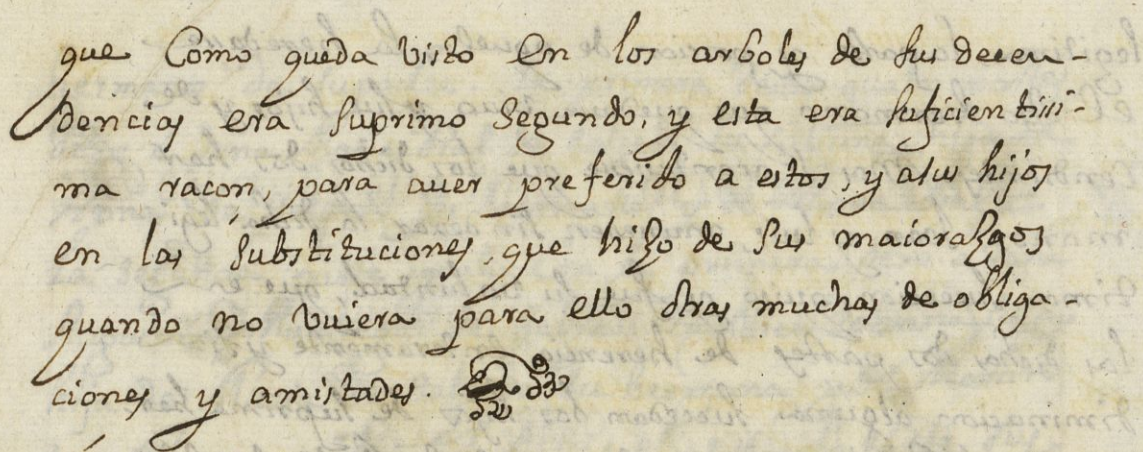 que Como queda visto en los arboles de sus decen-
dencias era suprimo Segundo, y esta era suficientissi-
ma racon, para auer preferido a estos, y a sus hijos
en las substituciones, que hizo de sus maiorazgos
quando no vuiera para ello otras muchas de obliga-
ciones y amistades.